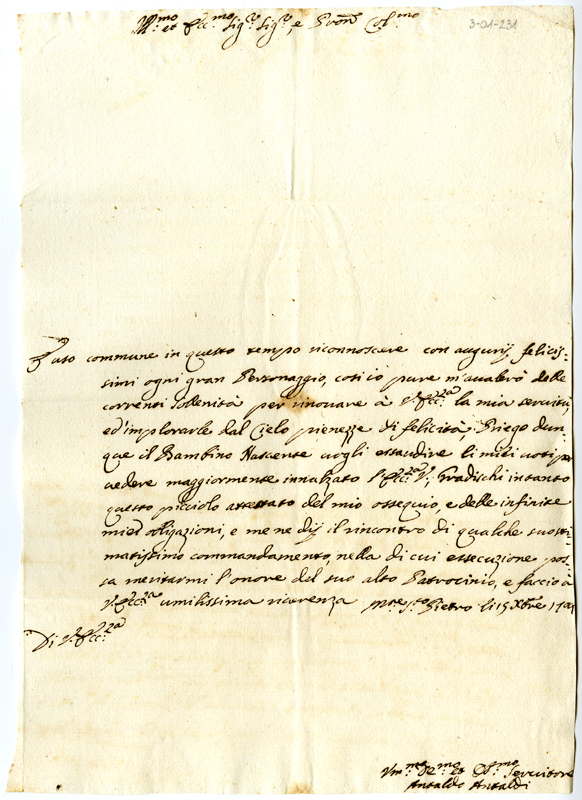 Ill.mo et Ecc.mo Sig.re Sig.re, e Pron Col.mo
3-01-231
È uso commune in questo tempo riconnoscere con augurij felicis-
simi ogni gran Personaggio, così io pure m'avalerò delle
correnti sollenità per rinovare à V. Ecc.za la mia servitù,
ed'implorarle dal Cielo pienezze di felicità, Priego dun-
que il Bambino Nascente vogli essaudire li miei voti per
vedere maggiormente innalzato l'Ecc.za V., Gradischi intanto
questo picciolo attestato del mio ossequio, e delle infinite
miei obligazioni, e me ne dij il rincontro di qualche suo sti-
matissimo commandamento, nella di cui essecuzione pos-
sa meritarmi l'onore del suo alto Patrocinio, e faccio à
V. Ecc.za umilissima riverenza Mte S.to Pietro li 15 Xbre
Di V. Ecc.za
Um.mo De.mo et Ob.mo Servitore
Antaldo Antaldi